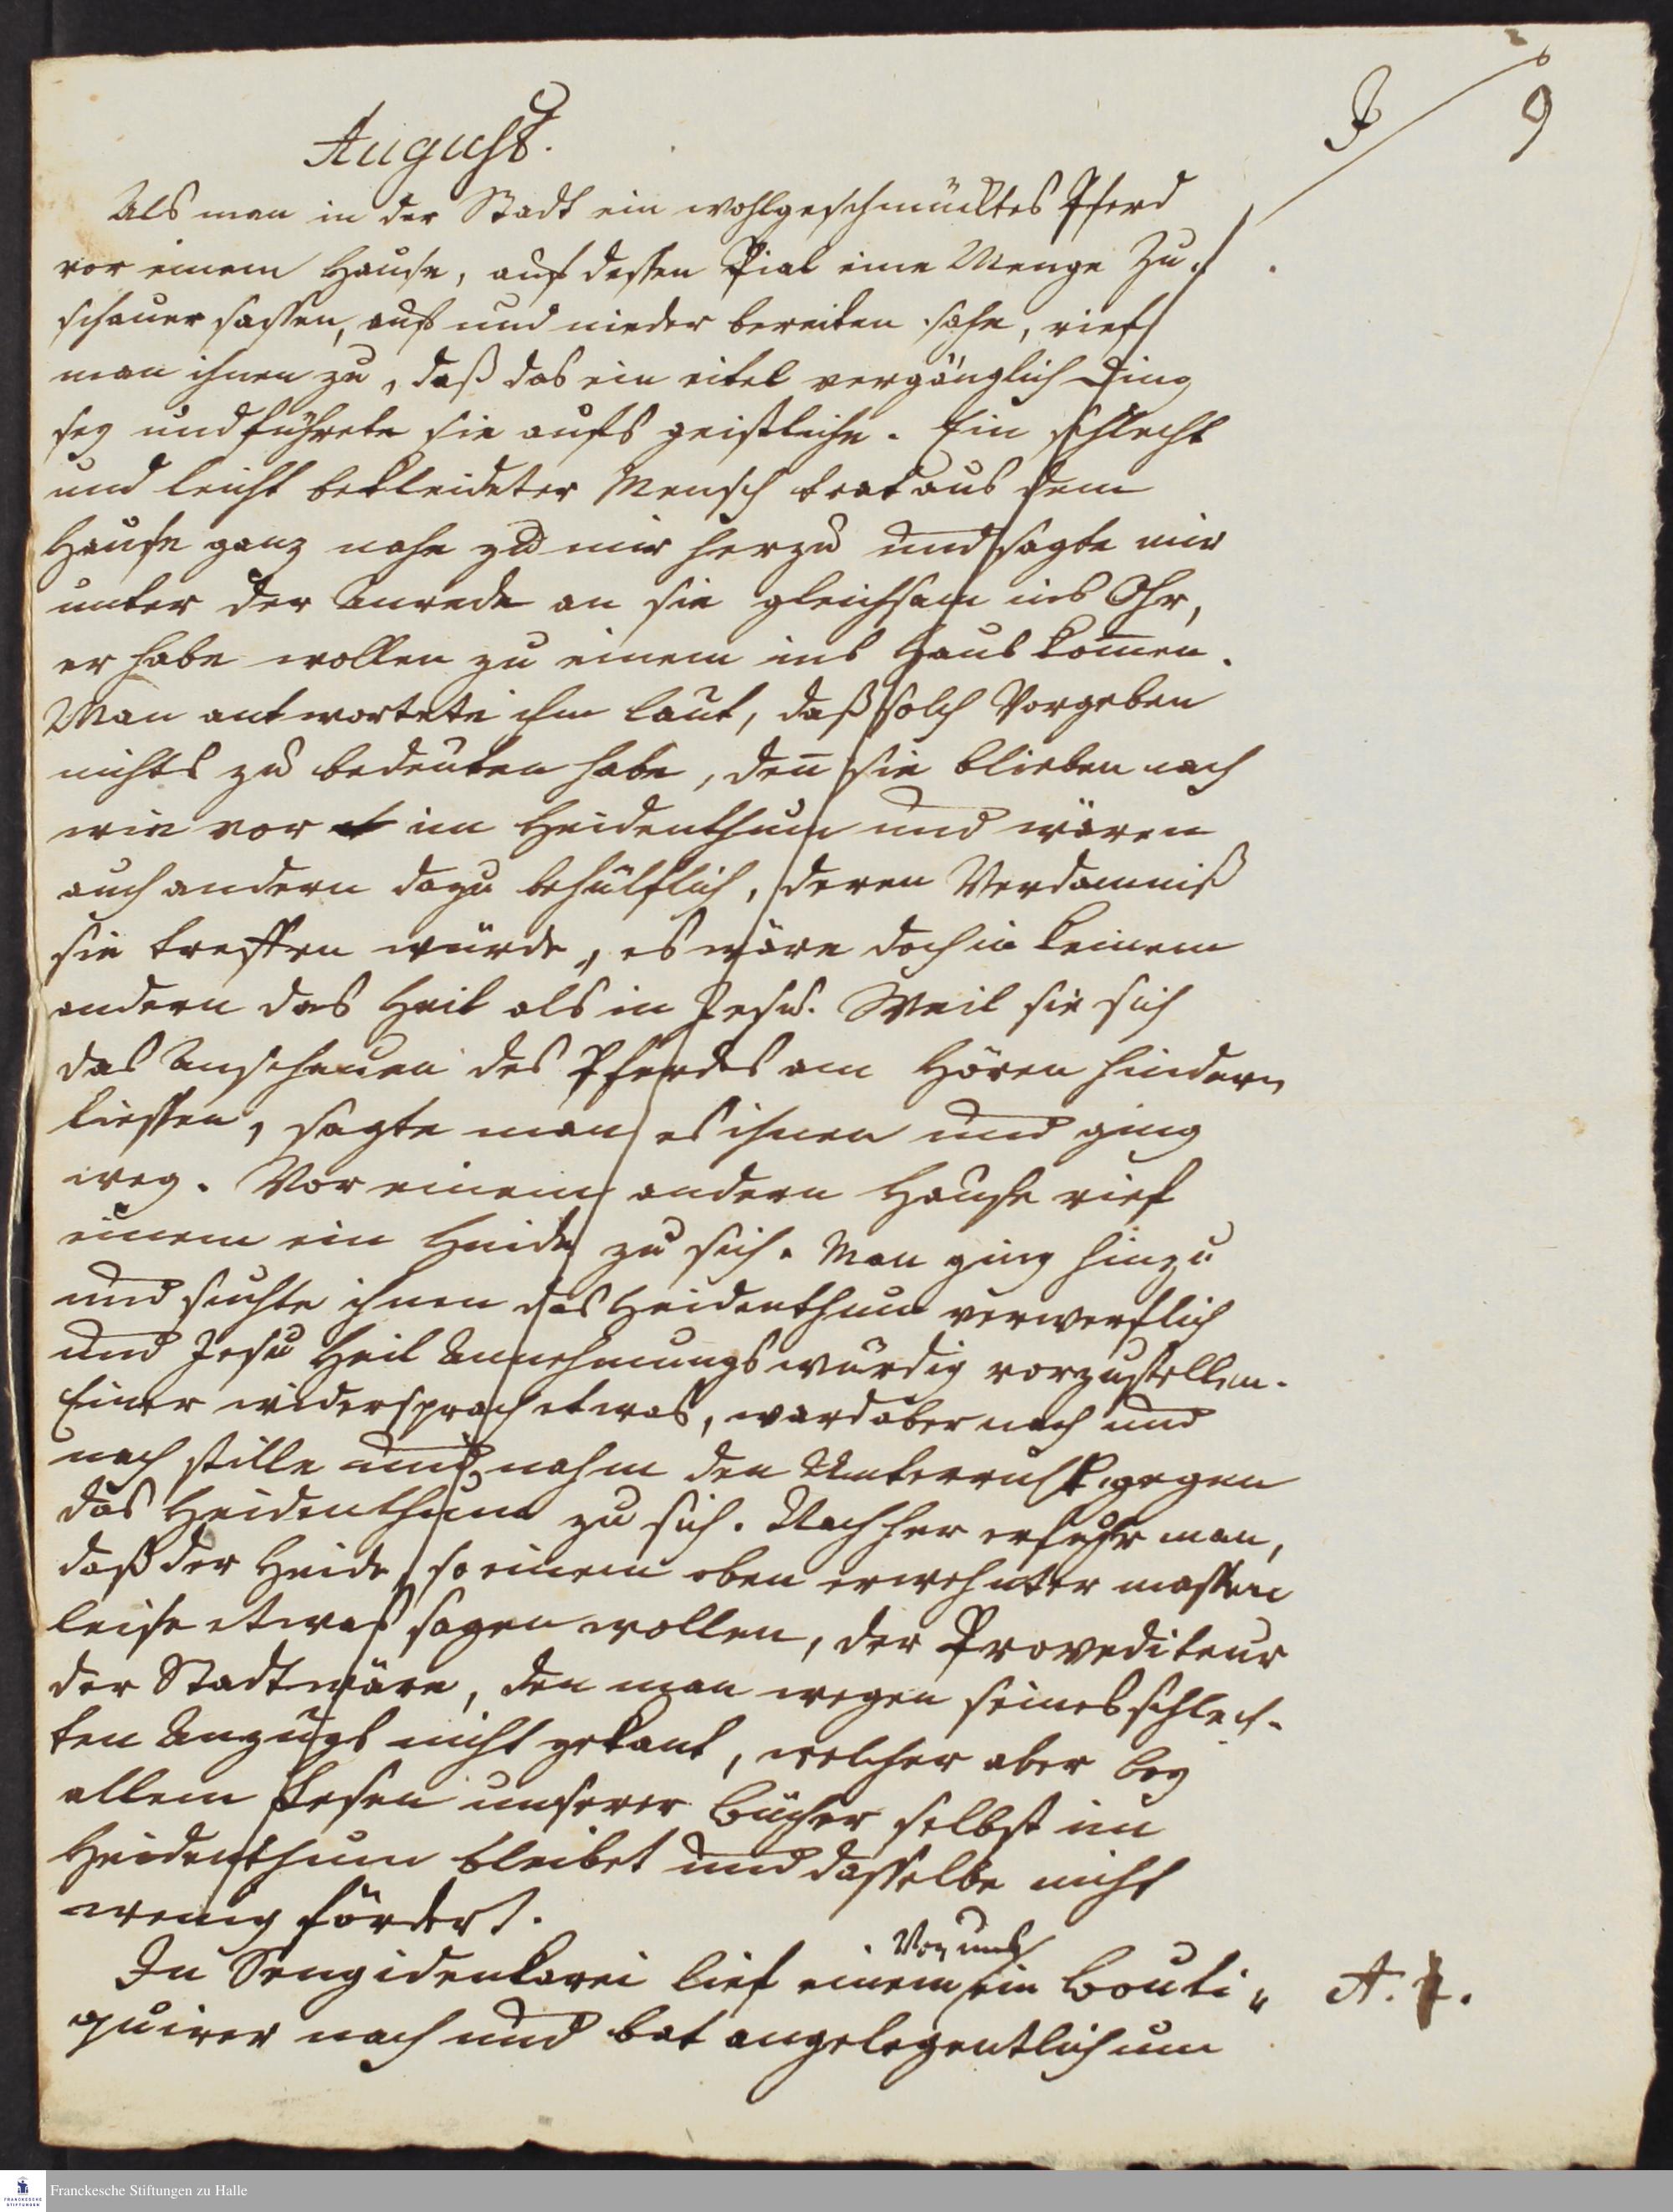 9
August.
Als man in der Stadt ein wohlgeschmücktes Pferd
vor einem Hause, auf dessen Pial eine Menge Zu-
schauer sassen, auf und nieder bereiten sahe, rief
man ihnen zu, daß das ein eitel vergänglich Ding
sey und führete sie aufs geistliche. Ein schlecht
und leicht bekleideter Mensch trat aus dem
Hause ganz nahe zu mir herzu und sagte mir
unter der Anrede an sie gleichsam ins Ohr,
er habe wollen zu einem ins Haus kom̄en.
Man antwortete ihm laut, daß solch Vorgeben
nichts zu bedeuten habe, den̄ sie blieben nach
wie vor im Heidenthum und wären
auch andern dazu behülflich, deren Verdamniß
sie treffen würde, es wäre doch in keinem
andern das Heil als in Jesu. Weil sie sich
das Anschauen des Pferdes am Hören hindern
liessen, sagte man es ihnen und ging
weg. Vor einem andern Hause rief
einem ein Heide zu sich. Man ging hinzu
und suchte ihnen das Heidenthum verwerflich
und Jesu Heil Annehmungswürdig vorzustellen.
Einer widersprach etwas, ward aber nach und
nach stille und nahm den Unterricht gegen
das Heidenthum zu sich. Nachher erfuhr man,
daß der Heide, so einem oben erwehnter massen
leise etwas sagen wollen, der Provediteur
der Stadt wäre, den man wegen seines schlech-
ten Anzugs nicht gekant, welcher aber bey
allem Lesen unserer Bücher selbst im
Heidenthum bleibet und dasselbe nicht
wenig fördert.
Von uns
In Sengidenkarei lief einem ein Bouti-
quirer nach und bat angelegentlich um
A.
Franckesche Stiftungen zu Halle